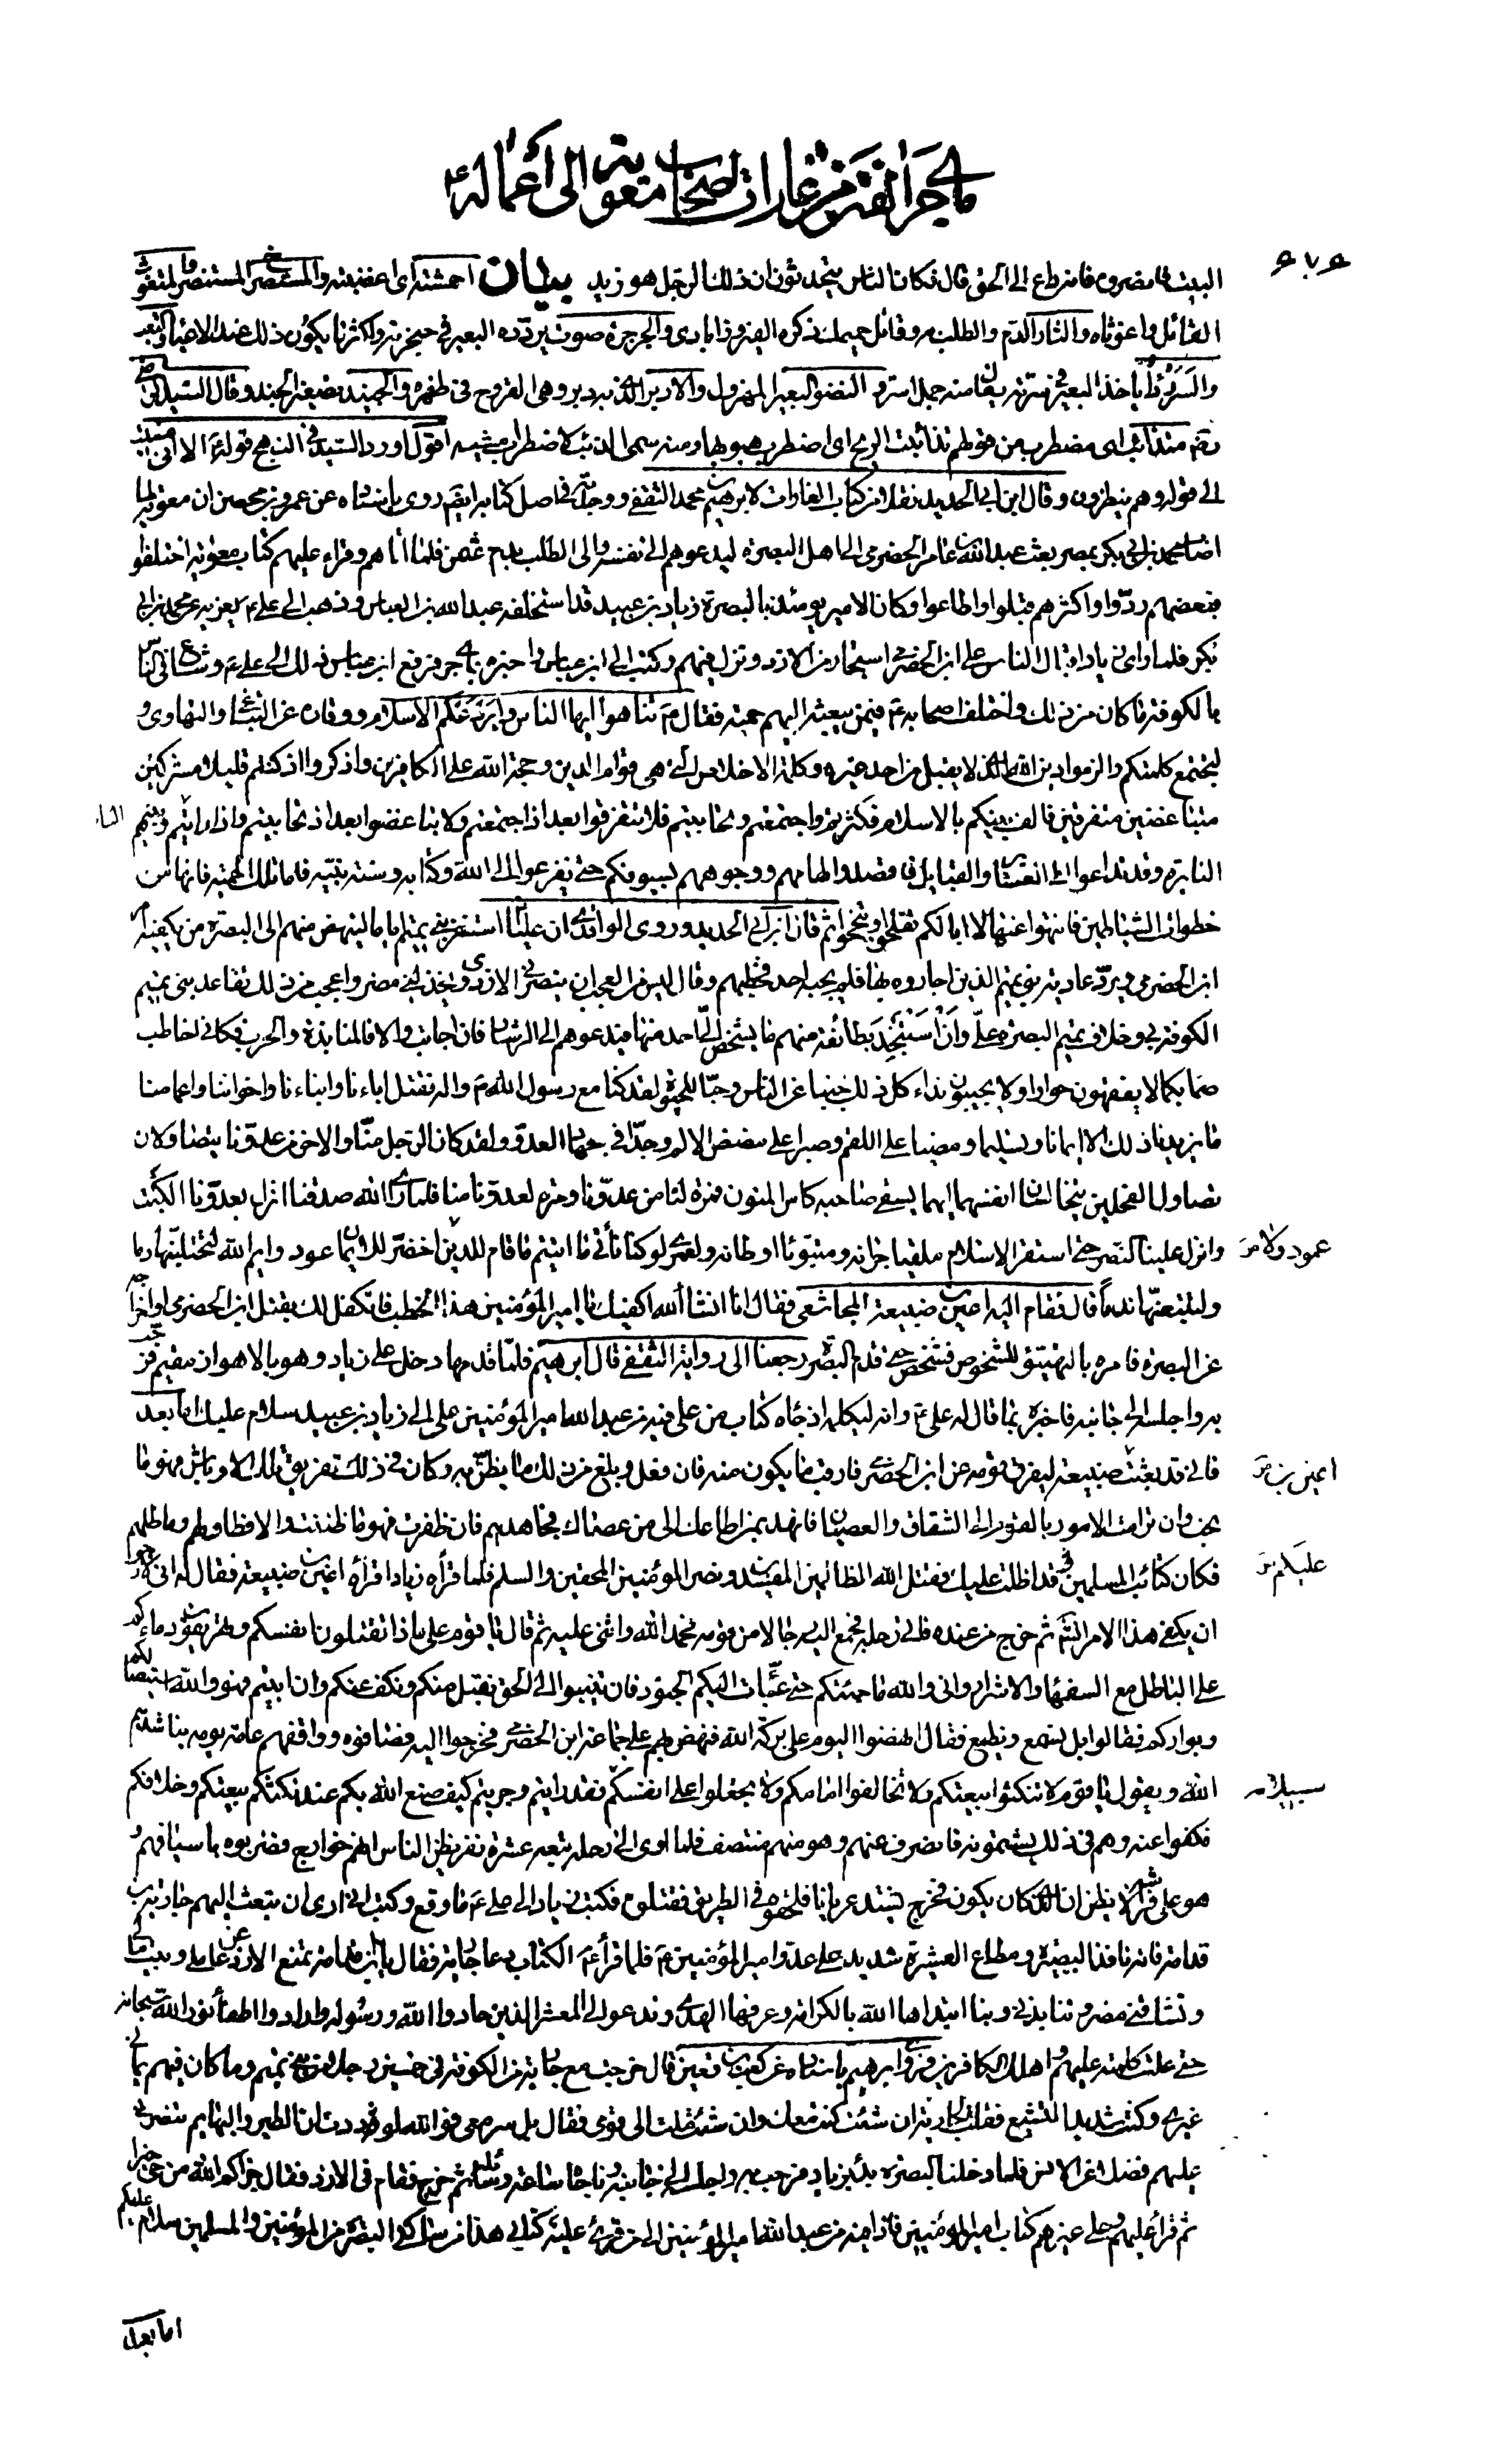 ما جرى من الفتن من غارات اصحاب معوية الى اعماله ع
٦٧٦
البيت فا مضروه فا من داع الى الحق قال فكان الناس يتحدثون ان ذلك الرجل هو زيد بيان احمشته اى اغضبته والمستصرخ المستنصر والمتغوث
القائل وا غوثاه والثار الدم والطلب به وقاتل حميمك ذكره الفيروزابادى والجرجرة صوت يردده البعير في حنجرته واكثر ما يكون ذلك عند الاعياء والتعب
والسرر داء ياخذ البعير في سرته يقال منه جمل اسر و النضو البعير المهزول والادبر الذى به دبر وهى القروح في ظهره والجنيد تصغير الجند وقال السيد الرضى
رض متذائب اى مضطرب من قولهم تذائبت الريح اى اضطرب هبوبها ومنه سمى الذئب لاضطراب مشيه اقول اورد السيد في النهج قوله ع الا انى منيت
الى قوله وهم ينظرون وقال ابن ابى الحديد نقلا من كتاب الغارات لابرهيم بن محمد الثقفى ووجدته في اصل كتابه ايضم روى باسناده عن عمرو بن محصن ان معوية لما
اصاب محمد بن ابى بكر بمصر بعث عبد الله بن عامر الحضرمى الى اهل البصرة ليدعوهم الى نفسه والى الطلب بدم عثمن فلما اتاهم وقراء عليهم كتاب معوية اختلفوا
فبعضهم ردوا واكثرهم قبلوا واطاعوا وكان الامير يومئذ بالبصرة زياد بن عبيد قد استخلفه عبد الله بن العباس وذهب الى على ع يعزيه عن محمد بن ابى
بكر فلما راى زياد اقبال الناس على ابن الحضرمى استجار من الازد ونزل فيهم وكتب الى ابن عباس واخبره بما جرى فرفع ابن عباس ذلك الى على ع وشاع في الناس
بالكوفة ما كان من ذلك واختلف اصحابه ع فيمن يبعثه اليهم حمية فقال ع تناهوا ايها الناس وليردعكم الاسلام ووقاره عن التباغى والتهاوى و
لتجتمع كلمتكم والزموا دين الله الذى لا يقبل من احد غيره وكلمة الاخلاص التى هى قوام الدين وحجة الله على الكافرين واذكروا اذ كنتم قليلا مشركين
متباغضين متفرقين فالف بينكم بالاسلام فكثرتم واجتمعتم وتحاببتم فلا تتفرقوا بعد اذ اجتمعتم ولا تباغضوا بعد اذ تحاببتم واذا رايتم وبينهم
النايرة وقد تداعوا الى العشاير والقبايل فاقصدوا لهامهم ووجوههم بسيوفكم حتى يفزعوا الى الله وكتابه وسنة نبيه فاما تلك الحمية فانها من
خطوات الشياطين فانتهوا عنها لا ابا لكم تفلحوا وتنجحوا ثم قال ابن ابى الحديد وروى الواقدى ان عليا استنفر بنى تميم اياما لينهض منهم الى البصرة من يكفيه امر
ابن الحضرمى ويرد عادية بنى تميم الذين اجاروه بها فلم يجبه احد فخطبهم وقال اليس من العجب ان ينصرنى الازد ويخذلنى مضر واعجب من ذلك تقاعد بنى تميم
الكوفة بى وخلاف تميم البصرة على وان استنجد بطائفة منهم ما يشخص الى احد منها فيدعوهم الى الرشاد فان اجابت والا فالمنابذة والحرب فكانى اخاطب
صما بكما لا يفقهون حوارا ولا يجيبون نداء كل ذلك جبنا عن الباس وحبا للحيوة لقد كنا مع رسول الله ص واله نقتل اباءنا وابناءنا واخواننا واعمامنا
ما يزيدنا ذلك الا ايمانا وتسليما ومضيا على اللقم وصبرا على مضض الالم وجدا في جهاد العدو ولقد كان الرجل منا والاخر من عدونا يتصاولان
تصاول الفحلين يتخالسان انفسهما ايهما يسقى صاحبه كاس المنون فمرة لنا من عدونا ومرة لعدونا منا فلما راى الله صدقنا انزل بعدونا الكبت
وانزل علينا النصر حتى استقر الاسلام ملقيا جرانه ومتبوئا اوطانه ولعمرى لو كنا نأتى ما اتيتم ما قام للدين عمود ولا اخضر للايمان عود وايم الله لتحتلبنها دما
ولتتبعنها ندما قال فقام اليه اعين بن ضبيعة المجاشعى فقال انا انشاالله اكفيك يا امير المؤمنين هذا الخطب فاتكفل لك بقتل ابن الحضرمى او اخراجه
عن البصرة فامره بالتهيئو للشخوص فشخص حتى قدم البصرة رجعنا الى رواية الثقفى قال ابرهيم فلما قدمها دخل على زياد وهو بالاهواز مقيم فرحب
به واجلسه الى جانبه فاخبره بما قال له على ع وانه ليكلمه اذ جاءه كتاب من على فيه من عبد الله امير المؤمنين على الى زياد بن عبيد سلام عليك اما بعد
فانى قد بعثت اعين بن ضبيعة ليفرق قومه عن ابن الحضرمى فارقب ما يكون منه فان فعل وبلغ من ذلك ما يظن به وكان في ذلك تفريق تلك الاوباش فهو ما
نحب وان ترامت الامور بالقوم الى الشقاق والعصيان فانهد بمن اطاعك الى من عصاك فجاهدهم فان ظفرت فهو ما ظننت والا فطاولهم وماطلهم
فكان كتائب المسلمين قد اظلت عليك فقتل الله الظالمين المفسدين ونصر المؤمنين المحقين والسلم فلما قرأه زياد اقرأه اعين بن ضبيعة فقال له انى لارجو
ان يكفى هذا الامر انشاء الله ثم خرج من عنده فاتى رحله فجمع اليه رجالا من قومه فحمد الله واثنى عليه ثم قال يا قوم على ماذا تقتلون انفسكم وتهريقون دماءكم
على الباطل مع السفهاء والاشرار وانى والله ما جئتكم حتى عبات اليكم الجنود فان تنيبوا الى الحق نقبل منكم ونكف عنكم وان ابيتم فهو والله استيصالكم
وبواركم فقالوا بل نسمع ونطيع فقال انهضوا اليوم على بركة الله فنهض بهم على جماعة ابن الحضرمى فخرجوا اليه فصافوه وواقفهم عامة يومه يناشدهم
الله ويقول يا قوم لا تنكثوا بيعتكم ولا تخالفوا امامكم ولا تجعلوا على انفسكم سبيلا فقد رايتم وجربتم كيف صنع الله بكم عند نكثكم بيعتكم وخلافكم
فكفوا عنه وهم في ذلك يشتمونه فانصرف عنهم وهو منهم منتصف فلما اوى الى رحله تبعه عشرة نفر يظن الناس انهم خوارج فضربوه باسيافهم و
هو على فراشه لا يظن ان الذى كان يكون فخرج يشتد عريانا فلحقوه في الطريق فقتلوه فكتب زياد الى على ع ما وقع وكتب انى ارى ان تبعث اليهم جارية بن
قدامة فانه نافذ البصيرة ومطاع العشيرة شديد على عدو امير المؤمنين ع فلما قرأ ع الكتاب دعا جارية فقال يا بن قدامة تمنع الازد عن عاملى وبيت مالى
وتشاقنى مضر وتنابذنى وبنا ابتداها الله بالكرامة وعرفها الهدى وتدعو الى المعشر الذين حادوا الله ورسوله وارادوا اطفاء نور الله سبحانه
حتى علت كلمته عليهم واهلك الكافرين فروى ابرهيم باسناده عن كعب بن قعين قال خرجت مع جارية من الكوفة في خمسين رجلا من بنى تميم وما كان فيهم يمانى
غيرى وكنت شديد التشيع فقلت لجارية ان شئت كنت معك وان شئت ملت الى قومى فقال بل سر معى فوالله لوددت ان الطير والبهايم تنصرنى
عليهم فضلا عن الانس فلما دخلنا البصرة بدأ بزياد فرحب به واجلسه الى جانبه وناجاه ساعة وسائله ثم خرج فقام في الازد فقال جزاكم الله من حى خيرا
ثم قرأ عليهم وعلى غيرهم كتاب امير المؤمنين فاذا فيه من عبد الله امير المؤمنين الى من قرئ عليه كتابى هذا من ساكنى البصرة من المؤمنين والمسلمين سلام عليكم
اما بعد